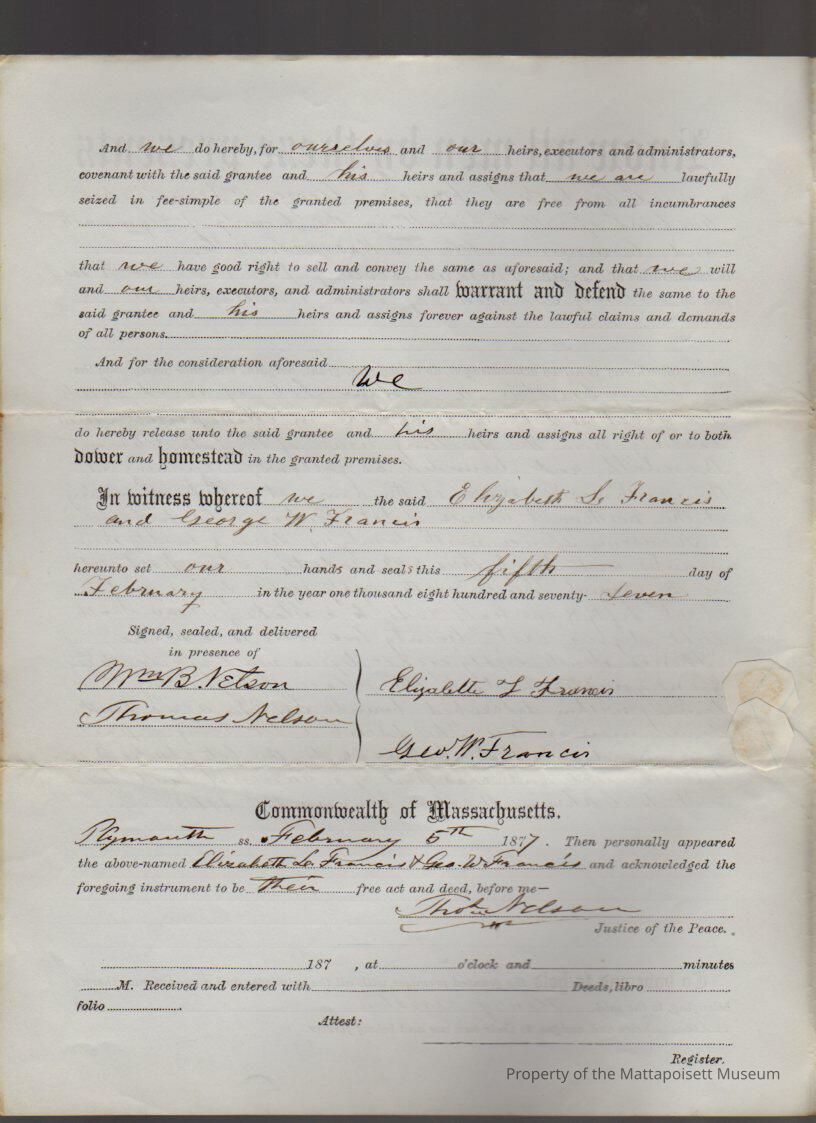 And we do hereby, for ourselves and our heirs, executors and administrators,
covenant with the said grantee and his heirs and assigns that we are lawfully
seized in fee-simple of the granted premises, that they are free from all incumbrances
that we have good right to sell and convey the same as aforesaid; and that we will
and our heirs, executors, and administrators shall warrant and defend the same to the
said grantee and his heirs and assigns forever against the lawful claims and demands
of all persons.
And for the consideration aforesaid
We
do hereby release unto the said grantee and his heirs and assigns all right of or to both
dower and homestead in the granted premises.
In witness whereof we the said Elizabeth L. Francis
and George W. Francis
hereunto set our hands and seals this fifth day of
February in the year one thousand eight hundred and seventy-seven
Signed, sealed, and delivered
in presence of
Wm B. Nelson
Elizabeth L Francis
Thomas Nelson
Geo. W. Francis
Commonwealth of Massachusetts.
Plymouth ss. February 5th 1877. Then personally appeared
the above-named Elizabeth L. Francis & Geo. W Francis and acknowledged the
foregoing instrument to be their free act and deed, before me—
Thos Nelson
Justice of the Peace.
187 , at o'clock and minutes
M. Received and entered with Deeds, libro
folio
Attest:
Register.
Property of the Mattapoisett Museum